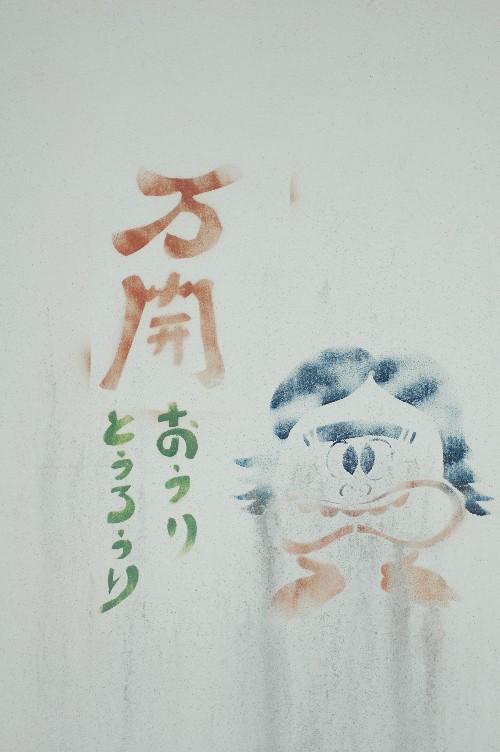 万開
おうり
とうるうり